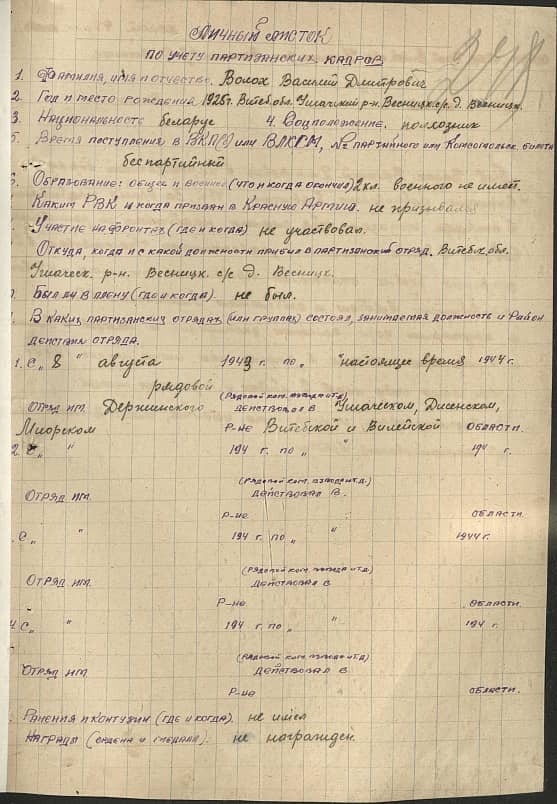 Личный листок
по учету партизанских кадров
278
1. Фамилия, имя и отчество. Волох Василий Дмитрович
2. Год и место рождения 1925г. Витеб. обл. Ушачский р-н. Весницк. с/с д. Весницк.
3. Национальность беларус 4. Соцположение. колхозник
5. Время поступления в ВКП(б) или ВЛКСМ, № партийного или комсомольск. билета
беспартийный
6. Образование: общее и военное (что и когда окончил) 2 кл. военного не имеет.
Каким РВК и когда призван в Красную Армию. не призывался
Участие на фронтах (где и когда) не участвовал.
Откуда, когда и с какой должности прибыл в партизанский отряд. Витебск. обл.
Ушачск. р-н. Весницк. с/с д. Весницк.
Был ли в плену (где и когда). не был.
В каких партизанских отрядах (или группах) состоял, занимаемая должность и район
действия отряда.
1. С „ 8 " августа 1943 г. по „ "настоящее время 1944 г.
рядовой
(Рядовой ком. взвода и т.д.)
Отряд им. Держинского действовал в Ушачском, Дисенском,
Миорском р-не Витебской и Вилейской области.
2. С „ " 194 г. по „ " 194 г.
(Рядовой ком. взвода и т.д.)
Отряд им. действовал в.
р-не области.
. С „ " 194 г. по „ " 1944 г.
(Рядовой ком. взвода и т.д.)
Отряд им. действовал в
р-не области.
4. С „ " 194 г. по „ " 194 г.
(Рядовой ком. взвода и т.д.)
Отряд им действовал в
р-не области.
Ранения и контузии (где и когда). не имел
Награды (ордена и медали). не награжден.